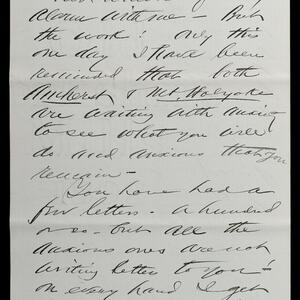 alarm with me - But
the work! Only this
one day I have been
reminded that both
Amherst & Mt. Holyoke
are waiting with anxiety
to see what you will
do and anxious that you
remain -
You have had a
few letters - a hundred
or so - but all the
anxious ones are not
writing letters to you!
on every hand I get